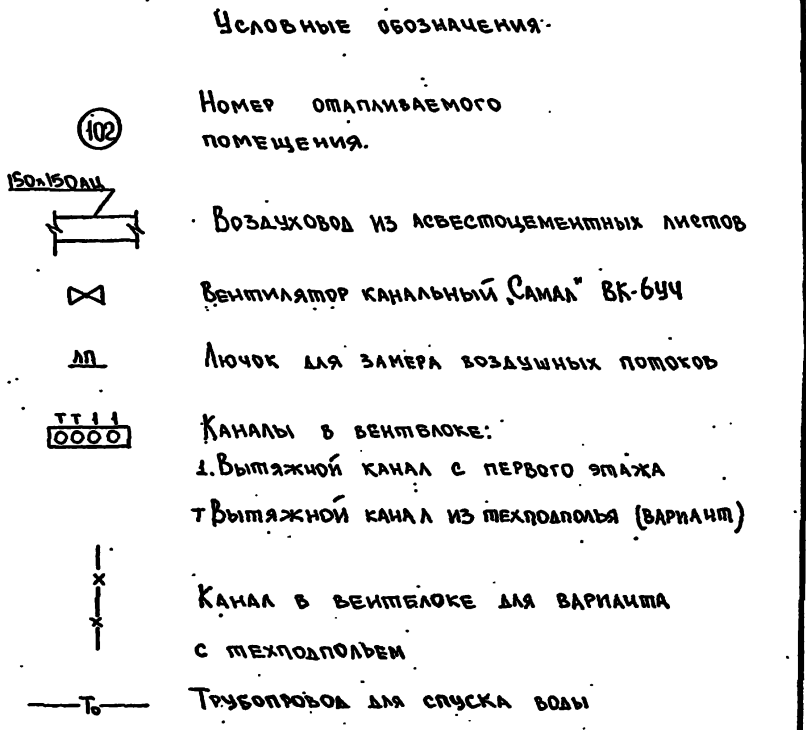 Условные обозначения.
102
Номер отапливаемого
помещения.
150х150АЦ
Воздуховод из асбестоцементных листов
Вентилятор канальный „Самал" ВК-6У4
ЛП
Лючок для замера воздушных потоков
Т Т 1 1
Каналы в вентблоке:
1. Вытяжной канал с первого этажа
Т Вытяжной канал из техподполья (вариант)
Канал в вентблоке для варианта
с техподпольем
Т₀
Трубопровод для спуска воды